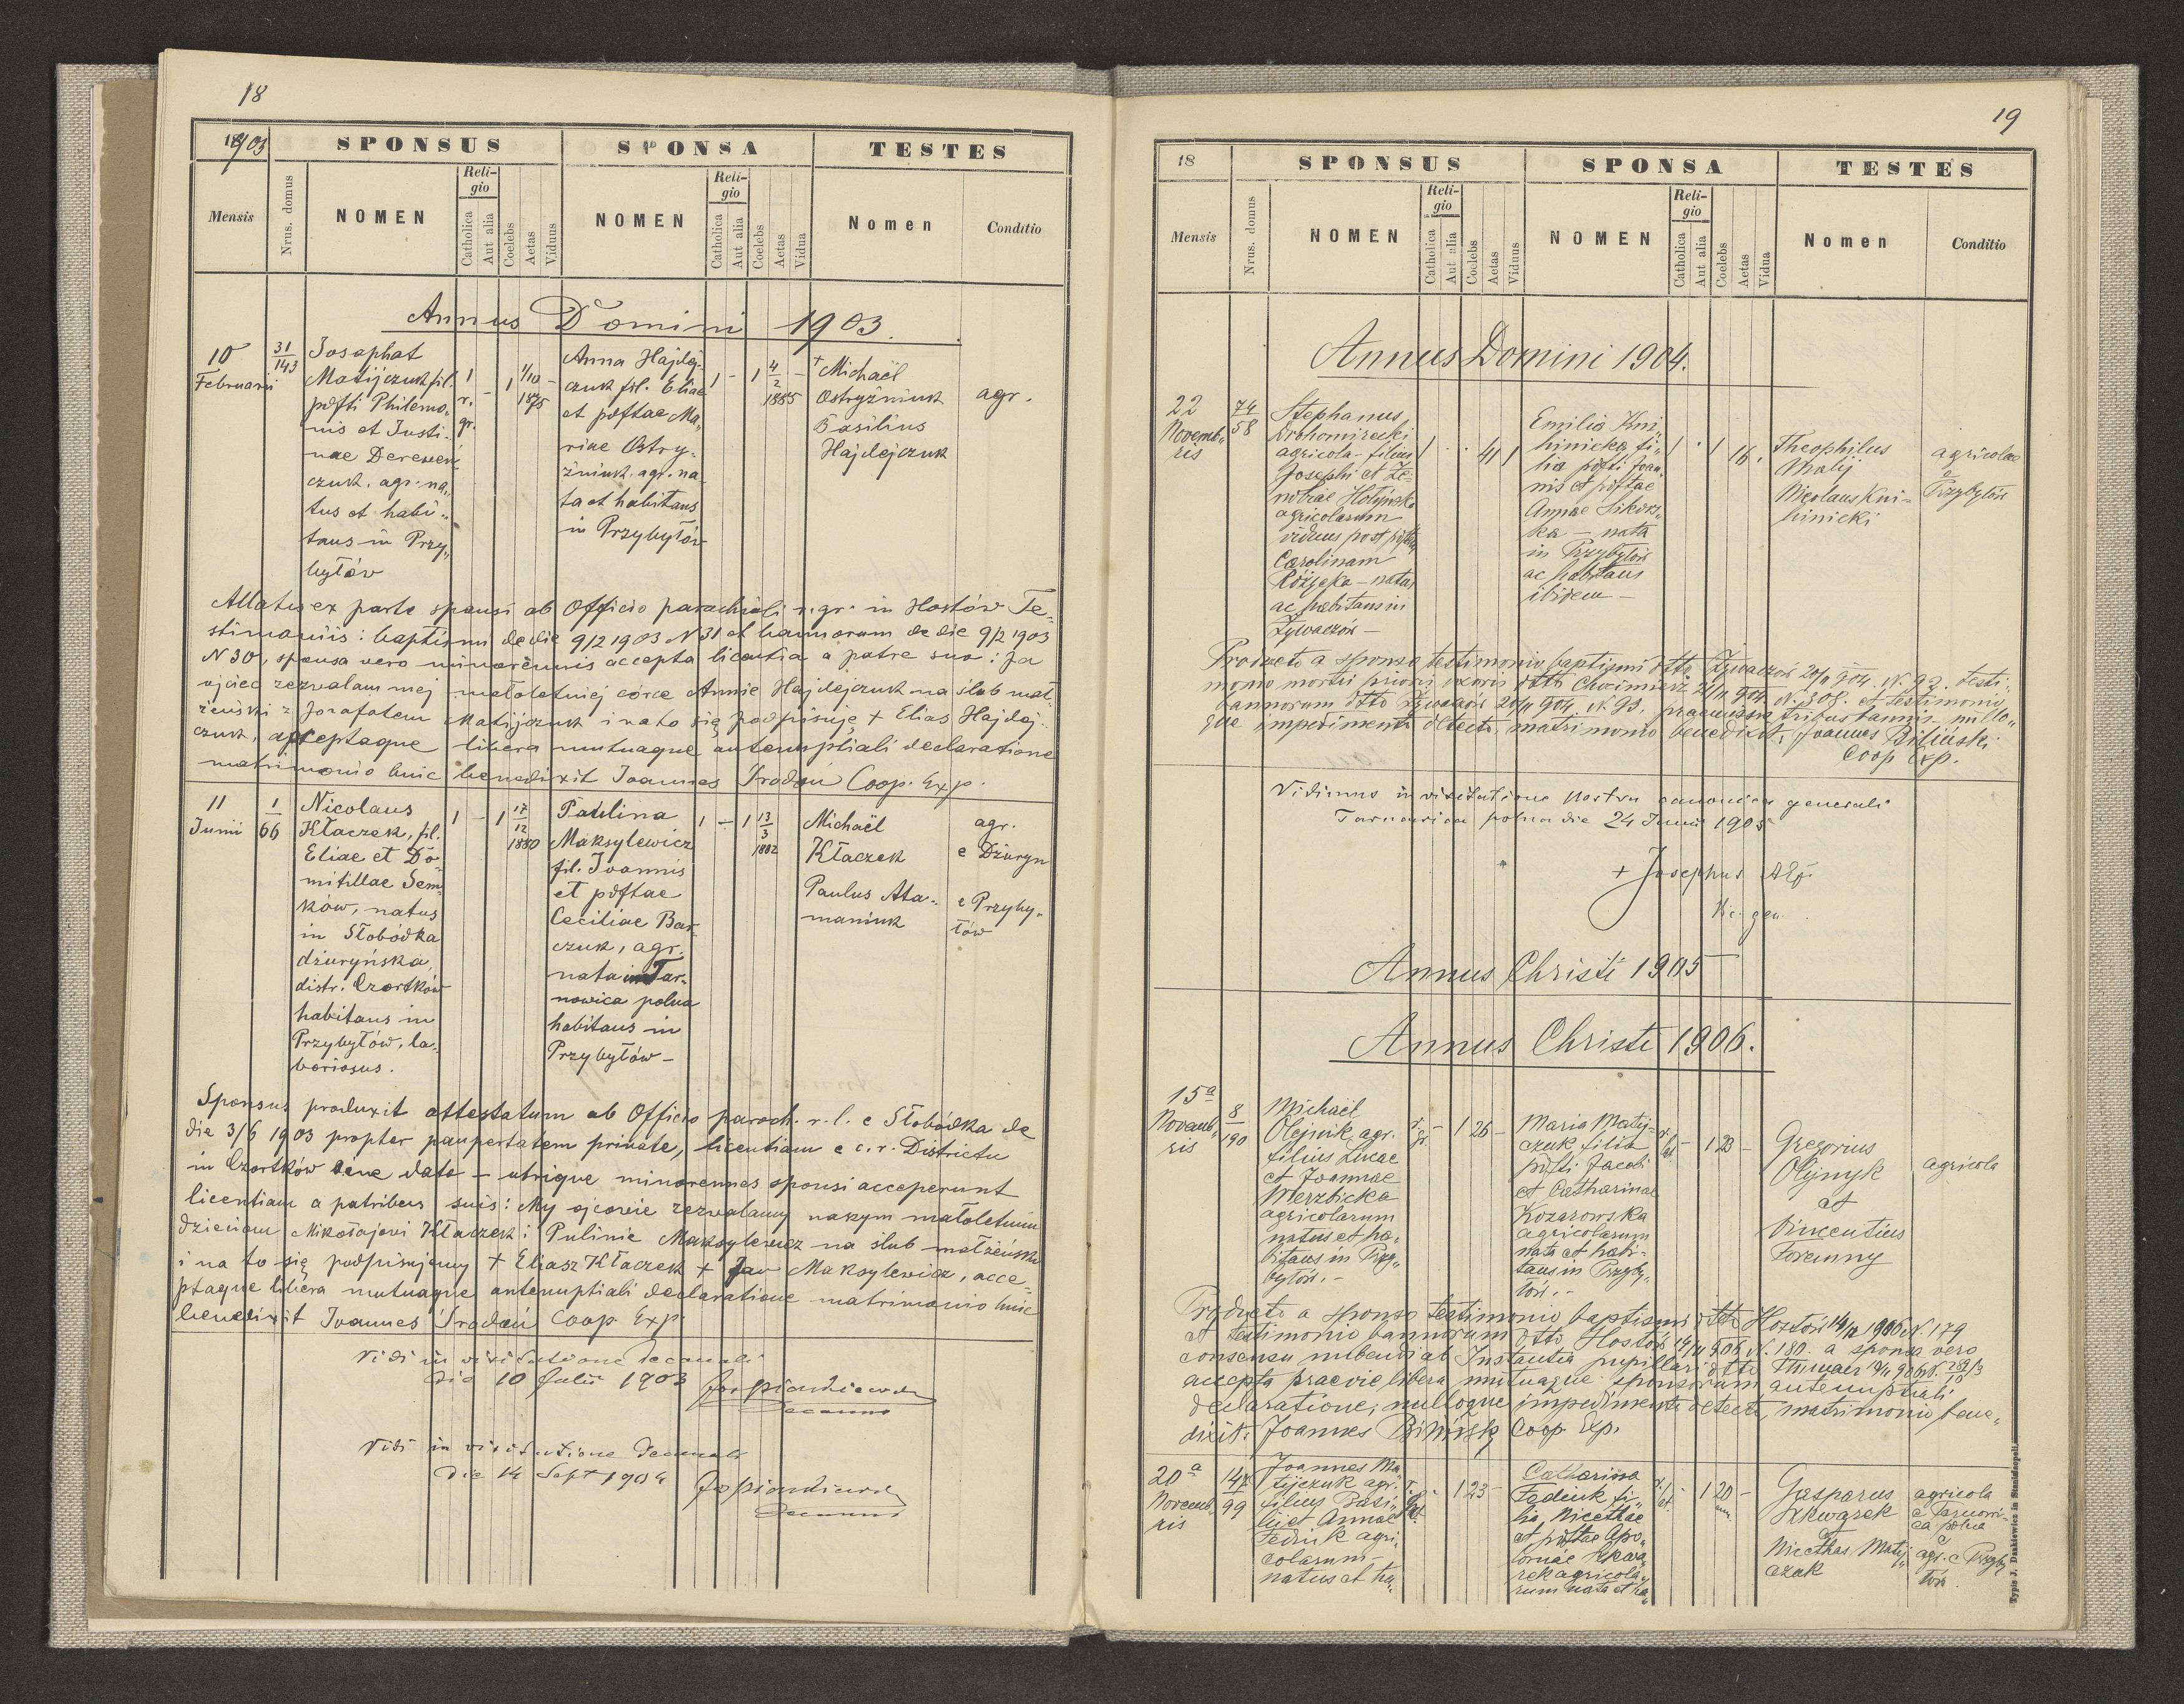 18
1903
SPONSUS
SPONSA
TESTES
Mensis
Nrus. domus
NOMEN
Religio
Catholica
Aut alia
Coelebs
Aetas
Viduus
NOMEN
Religio
Catholica
Aut alia
Coelebs
Aetas
Vidua
Nomen
Conditio
Annus Domini 1903.
10
Februarii
31
143
Josaphat
Matijczuk fil.
pdfti Philemo„
nis et Justi„
nae Dereween
czuk, agr. na„
tus et habi„
tans in Przy„
bytów
1
r.
gr.
-
1
1/10
1875
-
Anna Hajdej„
czuk fil. Eliae
et pdftae Ma„
riae Ostry„
żniuk. agr. na
ta et habitans
in Przybytów
1
-
1
4
2
1885
-
+ Michaël
Ostryżniuk
Basilius
Hajdejczuk
agr.
Allatis ex parte sponsi ab Officio parochiali r. gr. in Hostów Te„
stimoniis: baptismi de die 9/2 1903 N 31 et bannorum de die 9/2 1903
N 30, sponsa vero minorennis accepta licentia a patre suo: Ja
ojciec zezwalam mej małoletniej córce Annie Hajdejczuk na ślub mał„
żeński z Jozafatem Matijczuk i na to się podpisuję + Elias Hajdej„
czuk, acceptaque libera mutuaque antenuptiali declaratione
matrimonio huic benedixit Joannes Srodoń Coop. Exp.
11
Junii
1
66
Nicolaus
Kłaczek, fil.
Eliae et Do„
mitillae Sem„
ków, natus
in Słobódka
dżuryńska,
distr. Czortków
habitans in
Przybyłów, la„
boriosus.
1
-
1
17
12
1880
Paulina
Maksylewicz
fil. Joannis
et pdftae
Ceciliae Bar„
czuk, agr.
nata in Tar„
nowica polna
habitans in
Przybyłów -
1
-
1
13
3
1882
Michaël
Kłaczek
Paulus Ata„
maniuk
agr.
e Dżuryn
e Przyby„
łów
Sponsus produxit attestatum ab Officio paroch. r. l. e Słobódka de
die 3/6 1903 propter paupertatem private, licentiam e c. r. Districtu
in Czortków sine dato - utrique minorennes sponsi acceperunt
licentiam a patribus suis: My ojcowie zezwalamy naszym małoletnim
dzieciom Mikołajowi Kłaczek i Pulinie Maksylewicz na ślub małżeński
i na to się podpisujemy + Eliasz Kłaczek + Jan Maksylewicz, acce„
ptaque libera mutuaque antenuptiali declaratione matrimonio huic
benedixit Joannes Srodoń Coop. Exp.
Vidi in visitatione decanali
die 10 Julii 1903
decanus
Vidi in visitatione decanali
die 14 Sept 1904
decanus
19
18
SPONSUS
SPONSA
TESTES
Mensis
Nrus. domus
NOMEN
Religio
Catholica
Aut alia
Coelebs
Aetas
Viduus
NOMEN
Religio
Catholica
Aut alia
Coelebs
Aetas
Vidua
Nomen
Conditio
Annus Domini 1904.
22
Novemb„
ris
74
58
Stephanus
Drohomirecki
agricola - filius
Josephi et Ze„
nobiae Hołyńska
agricolarum
viduus post pdftam
Carolinam
Różycka - natus
ac habitans in
Żywaczów -
1
41
1
Emilia Kni„
hinicka fi„
lia pdfti Joan„
nis et pdftae
Annae Sikors„
ka - nata
in Przybyłów
ac habitans
ibidem -
1
1
16.
Theophilus
Malij
Nicolaus Kni„
hinicki
agricolae
e
Przybyłów
Producto a sponso testimonio baptismi dtto Żywaczów 20/11 904. N. 92. testi„
monio mortis prioris uxoris dtto Chocimierz 21/11 904. N. 308. et testimonio
bannorum dtto Żywaczów 20/11 904. N. 93. praemissis tribus bannis nullo„
que impedimento detecto, matrimonio benedixit, Joannes Biliński
Coop Exp.
Vidimus in visitatione Nostra canonica generali
Tarnavica polna die 24 Junii 1905
+ Josephus AEp
Annus Christi 1905
Annus Christi 1906.
15ª
Novemb„
ris
8
190
Michaël
Olejnik, agr.
filius Lucae
et Joannae
Wierzbicka
agricolarum
natus et ha„
bitans in Przy„
byłów. -
r.
gr.
-
1
26
-
Maria Matij„
czuk, filia
pdfti Jacobi
et Catharinae
Kozarowska
agricolarum
nata et habi„
tans in Przyby„
łów. -
r.
lat.
-
1
23
-
Gregorius
Olejnyk
et
Vincentius
Foremny
agricola
Producto a sponso testimonio baptismi dtto Hostów 14/11 1906 N. 179
et testimonio bannorum dtto Hostów 14/11 906 N. 180. a sponsa vero
consensu nubendi ab Instantia pupillari dtto Tłumacz
accepto praevie libera mutuaque sponsorum antenuptiali
declaratione, nulloque impedimento detecto, matrimonio bene„
dixit. Joannes Biliński Coop Exp.
20ª
Novemb„
ris
147
99
Joannes Ma„
tijczuk agr.
filius Basi„
lii et Annae
Fediuk agri„
colarum -
natus et ha„
1
23
-
Catharina
Fediuk fi„
lia Nicethae
et pdftae Apo„
loniae Szkwa„
rek agricola„
rum nata et ha„
r.
lat.
-
1
20
-
Gasparus
Szkwarek
Nicethas Matij„
czuk
agricola
e Tarnowi„
ca polna
agr. e Przyby„
łów.
Typis J. Dankiewicz in Stanislaopoli